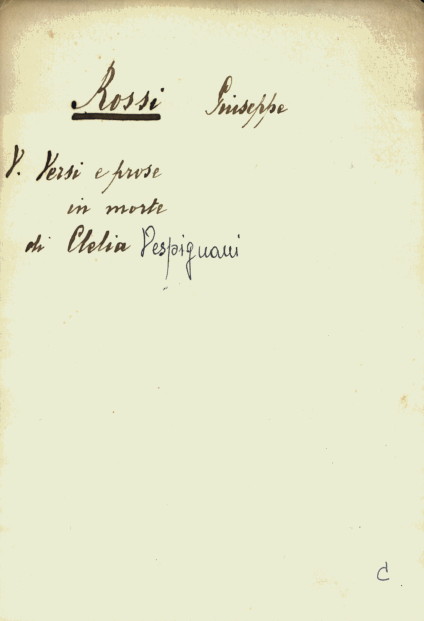 Rossi Giuseppe
V. Versi e prose
in morte
di Clelia Vespignani
C